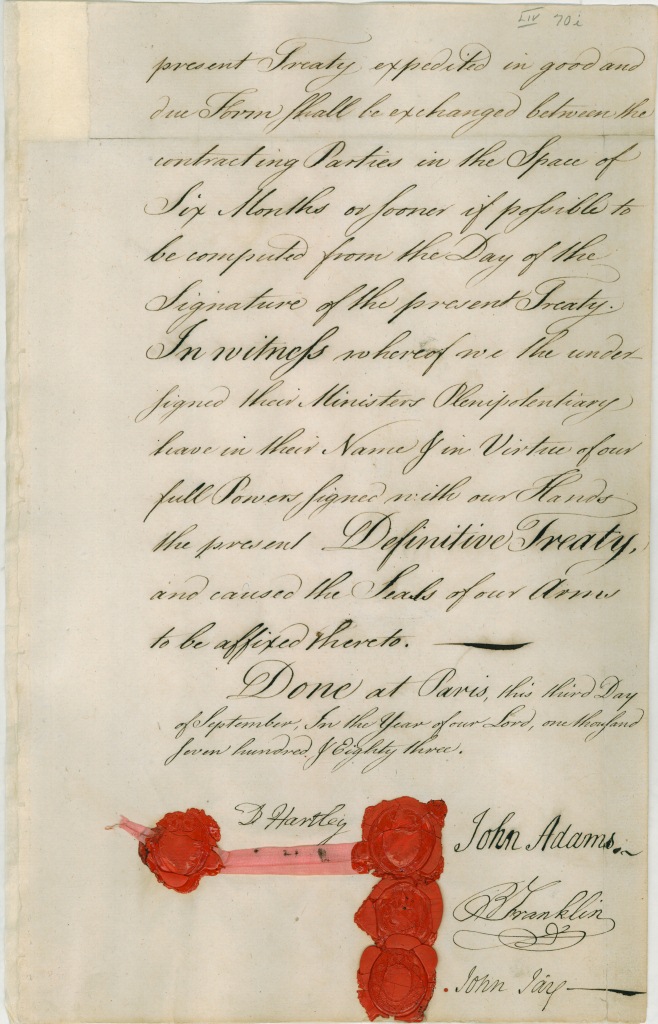 LIV 70i
present Treaty expedited in good and
due Form shall be exchanged between the
contracting Parties in the Space of
Six Months or sooner if possible to
be computed from the Day of the
Signature of the present Treaty.
In witness whereof we the under-
signed their Ministers Plenipotentiary
have in their Name & in Virtue of our
full Powers signed with our Hands
the present Definitive Treaty,
and caused the Seals of our Arms
to be affixed thereto.
Done at Paris, this third Day
of September, In the Year of our Lord, one thousand
seven hundred & Eighty three.
D Hartley
John Adams.
B Franklin
John Jay